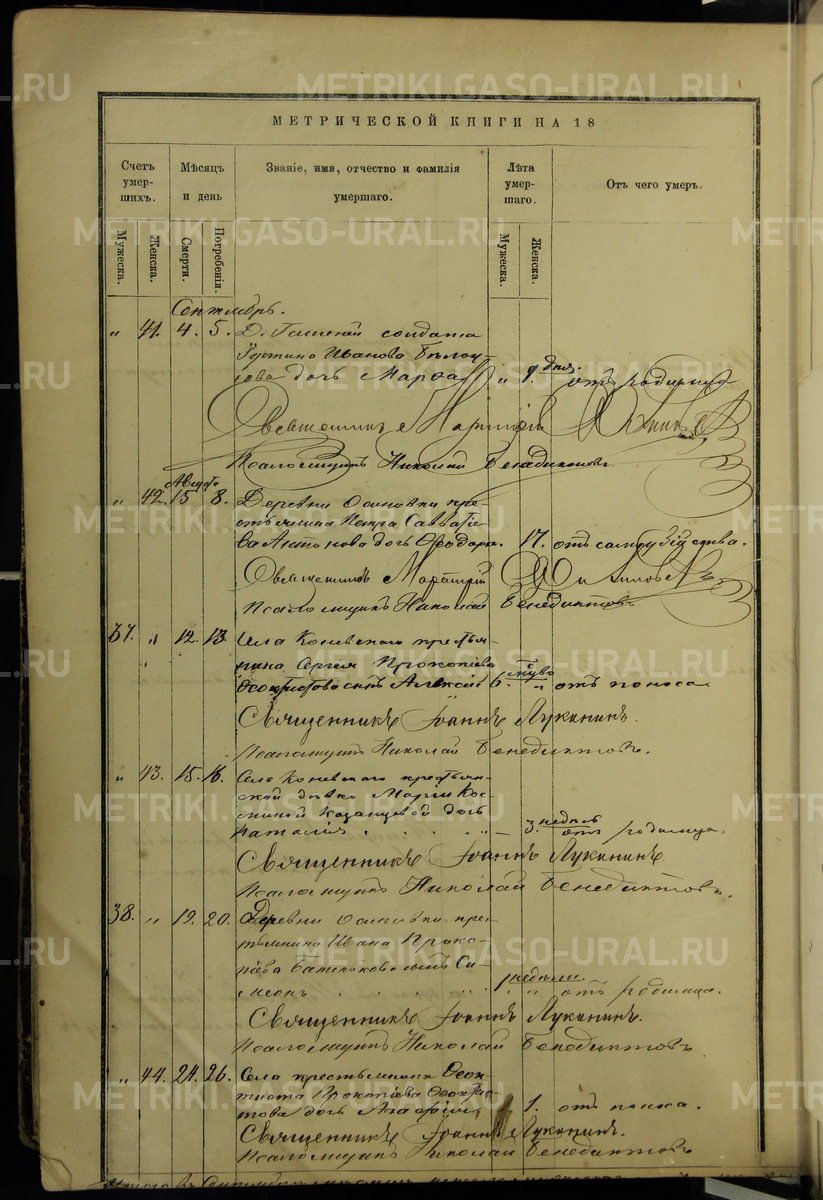 МЕТРИЧЕСКОЙ КНИГИ НА 18
Счетъ умер- шихъ.
Мѣсяцъ и день
Званіе, имя, отчество и фамилія умершаго.
Лѣта умер- шаго.
Отъ чего умеръ.
Мужеска.
Женска.
Смерти.
Погребенія.
Мужеска.
Женска.
Сентябрь.
„ 41. 4. 5. Д. солдата
Иванова
дочь Марѳа „ 9. дня. отъ родимца
Священникъ Мартирій
Псаломщикъ Николай Бенедиктовъ.
Августъ
„ 42. 15 8. Деревни Осиновки кре-
стьянина Петра Савватіе-
ва Антонова дочь Ѳеодора. 17. отъ самоубійства.
Священникъ Мартирій
Псаломщикъ Николай Бенедиктовъ.
37. „ 12. 13. Села Коневскаго крестья-
нина Сергія Прокопіева
Ѳеоктистова сынъ Алексій 6. „ отъ поноса
Священникъ Іоаннъ Луканинъ.
Псаломщикъ Николай Бенедиктовъ.
„ 43. 15. 16. Села Коневскаго крестьян-
ской дѣвки Маріи Кос-
миной Казанцевой дочь
Наталія . . . . „ 3. недѣль отъ родимца.
Священникъ Іоаннъ Луканинъ.
Псаломщикъ Николай Бенедиктовъ.
38. „ 19. 20. Деревни Осиновки кре-
стьянина Ивана Проко-
піева сынъ Си-
меонъ . . . . недѣли. „ отъ родимца.
Священникъ Іоаннъ Луканинъ.
Псаломщикъ Николай Бенедиктовъ
„ 44. 24. 26. Села крестьянина Ѳеок-
тиста Прокопіева Ѳеоктис-
това дочь Агафія 1. отъ поноса.
Священникъ Іоаннъ Луканинъ.
Псаломщикъ Николай Бенедиктовъ
METRIKI.GASO-URAL.RU